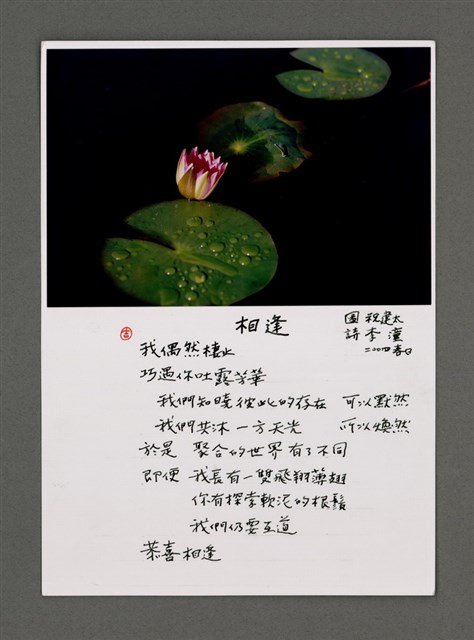 相逢
圖 程建太
詩 李瀅
二〇〇四春日
我偶然棲止
巧遇你吐露芳華
我們知曉彼此的存在 可以默然
我們共沐一方天光 所以煥然
於是 聚合的世界有了不同
即使 我長有一雙飛翔薄翅
你有探索軟泥的根鬚
我們仍要互道
恭喜相逢